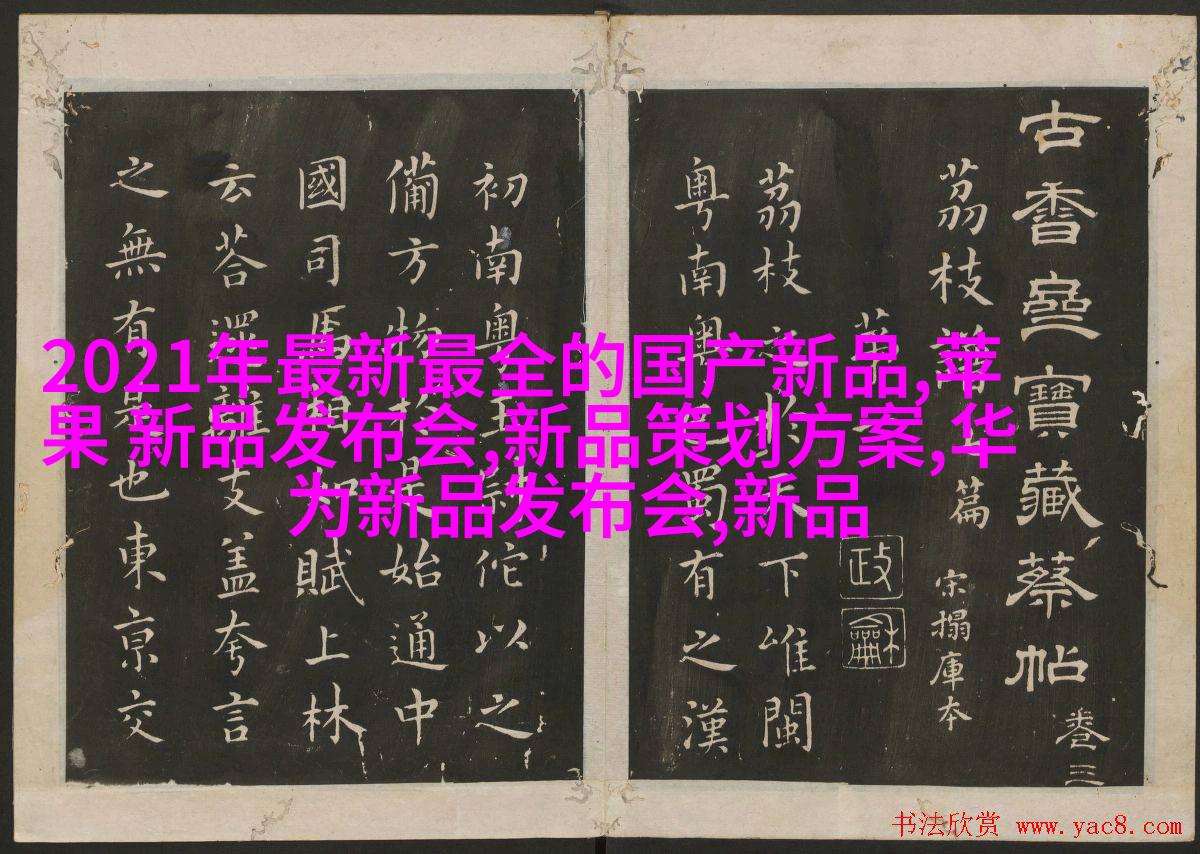 古香齋寶藏蔡帖 卷三
荔枝譜上篇 宋搨庫本
第一
政龢
荔枝之於天下唯閩
粵南粵巴蜀有之漢
初南粵王尉佗以之
備方物於是始通中
國司馬相如賦上林
云荅遝離支盖夸言
之無有是也東京交
2021年最新最全的国产新品,苹
果 新品发布会,新品策划方案,华
为新品发布会,新品
书法欣赏 www.yac8.com